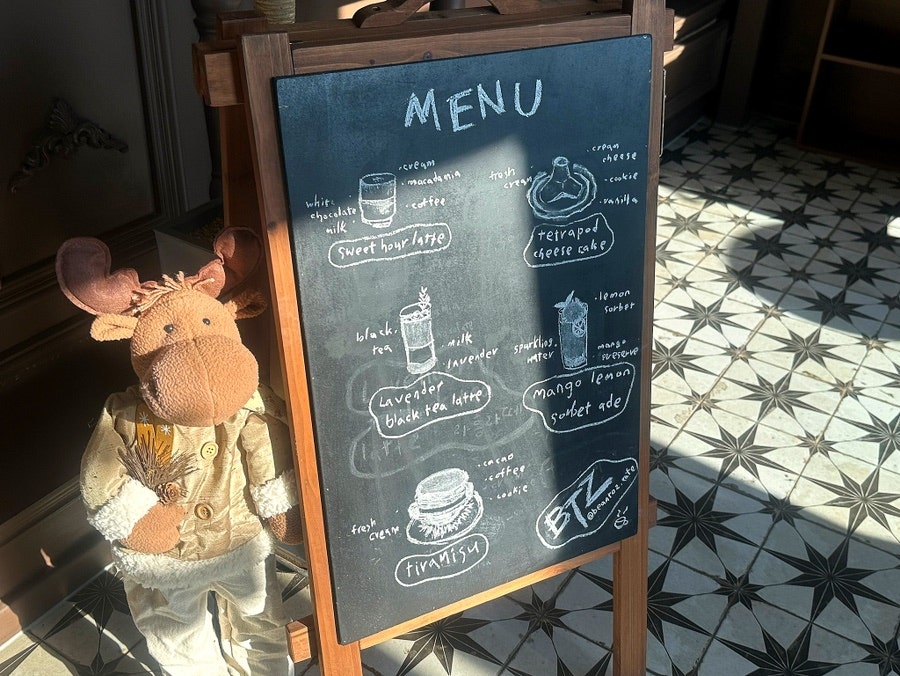 MENU
cream
macadamia
white
chocolate
milk
coffee
sweet hour latte
cream
cheese
fresh
cream
cookie
vanilla
tetrapod
cheese cake
black
tea
milk
lavender
Lavender
black tea latte
lemon
sorbet
sparkling
water
mango
preserve
mango lemon
sorbet ade
cacao
coffee
cookie
fresh
cream
tiramisu
BTZ